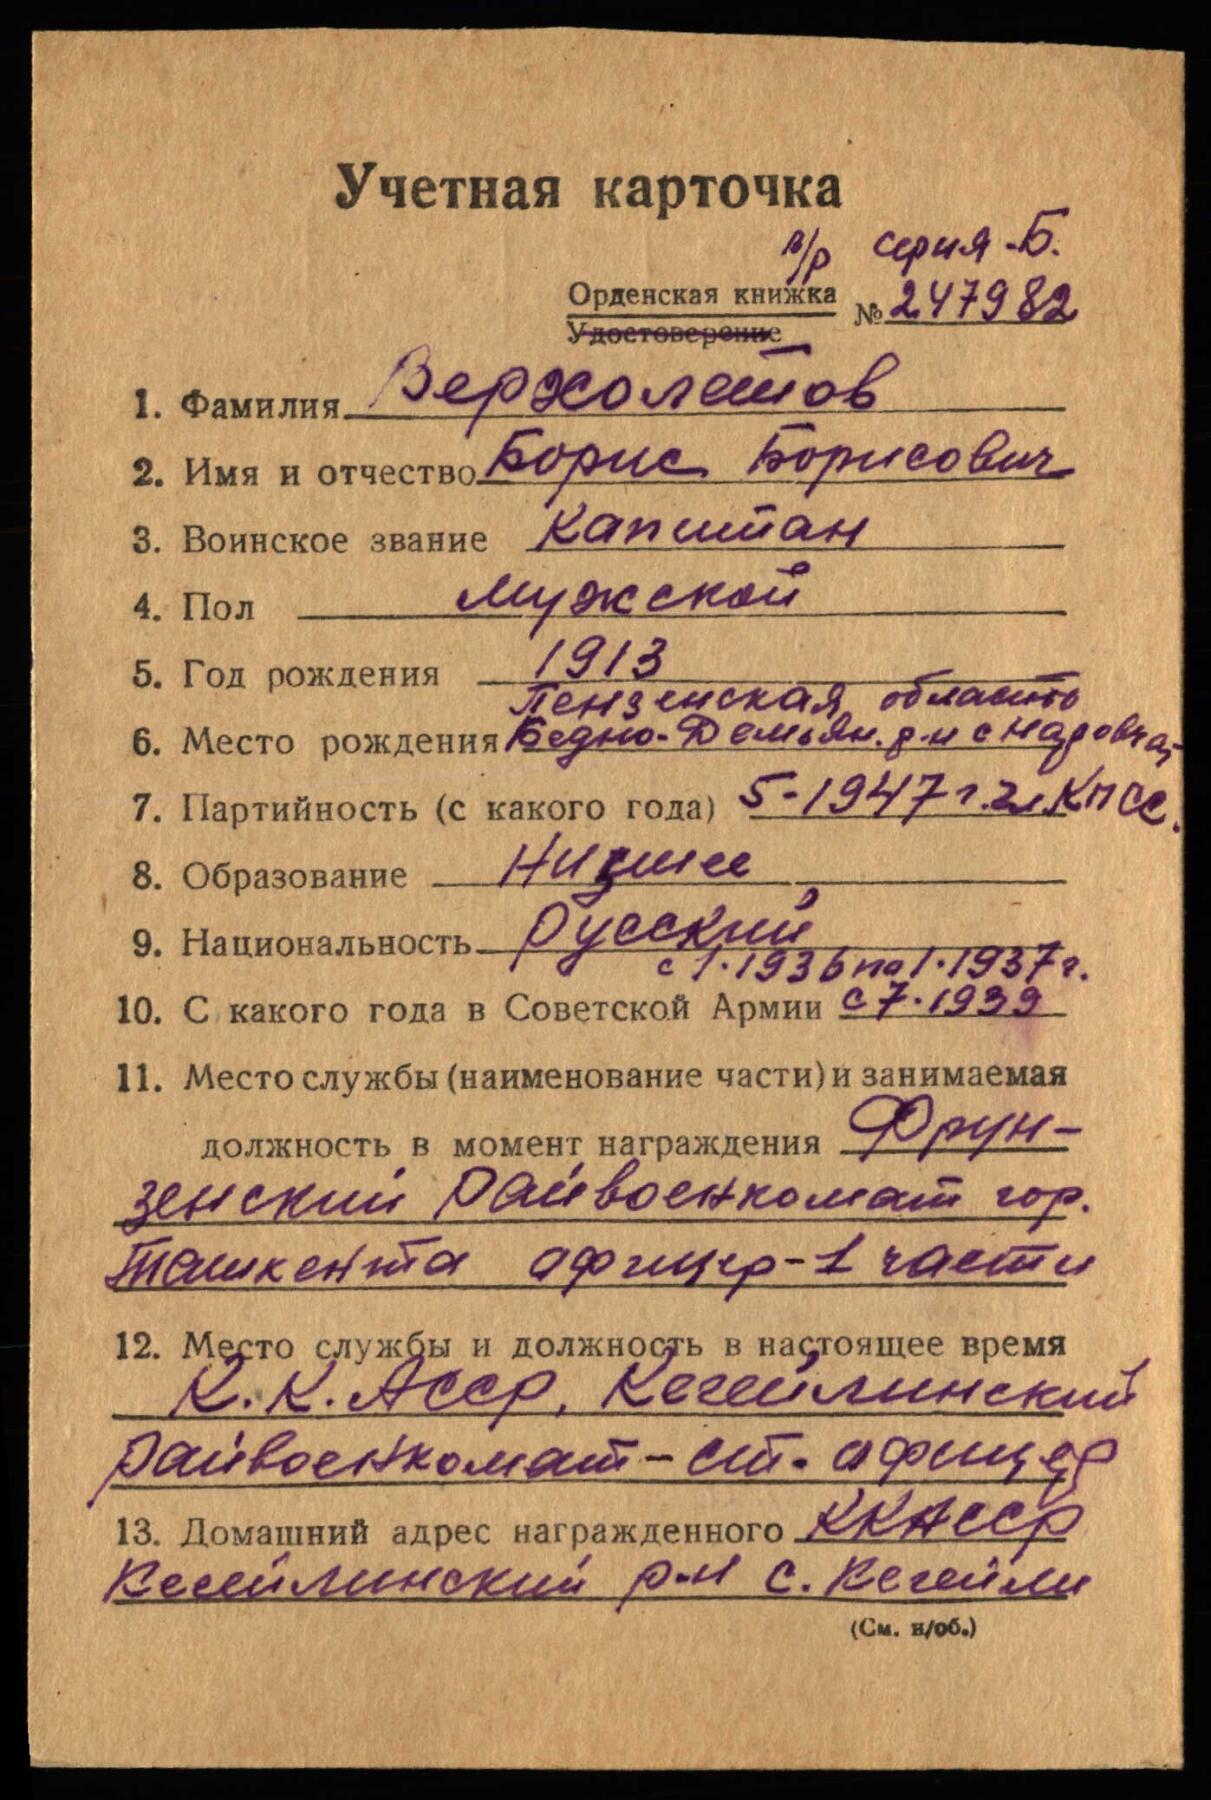 Учетная карточка
в/р серия-Б.
Орденская книжка № 247982
Удостоверение
1. Фамилия Верхолетов
2. Имя и отчество Борис Борисович
3. Воинское звание Капитан
4. Пол мужской
5. Год рождения 1913
Пензенская область
6. Место рождения Бедно-Демьян. р-н с Наровчат
7. Партийность (с какого года) 5-1947 г. чл КПСС.
8. Образование Низшее
9. Национальность Русский
с 1.1936 по 1.1937 г.
10. С какого года в Советской Армии с 7.1939
11. Место службы (наименование части) и занимаемая
должность в момент награждения Фрун-
зенский Райвоенкомат гор.
Ташкента офицер-1 части
12. Место службы и должность в настоящее время
К.К. АССР, Кегейлинский
Райвоенкомат-ст. офицер
13. Домашний адрес награжденного ККАССР
Кегейлинский р-н с. Кегейли
(См. н/об.)